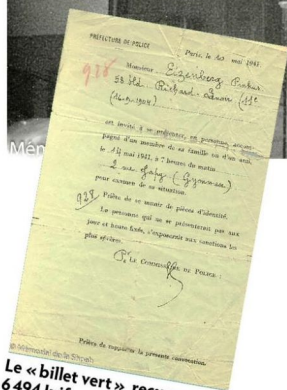 Mém
PRÉFECTURE DE POLICE
Paris, le mai 1941.
928
Monsieur Eizenberg
58 bld Richard Lenoir (11e
est invité à se présenter, en personne, accom-
pagné d'un membre de sa famille ou d'un ami,
le 14 mai 1941, à 7 heures du matin
2 rue Japy (Gymnase)
pour examen de sa situation.
928 Prière de se munir de pièces d'identité.
La personne qui ne se présenterait pas aux
jour et heure fixés, s'exposerait aux sanctions les
plus sévères.
LE COMMISSAIRE DE POLICE :
Prière de rapporter la présente convocation.
© Mémorial de la Shoah
Le «billet vert»
6 494